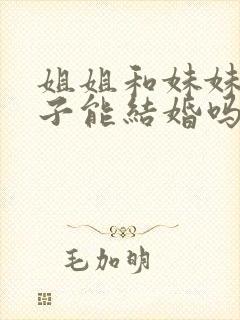 姐姐和妹妹
子能結婚吗
毛加明